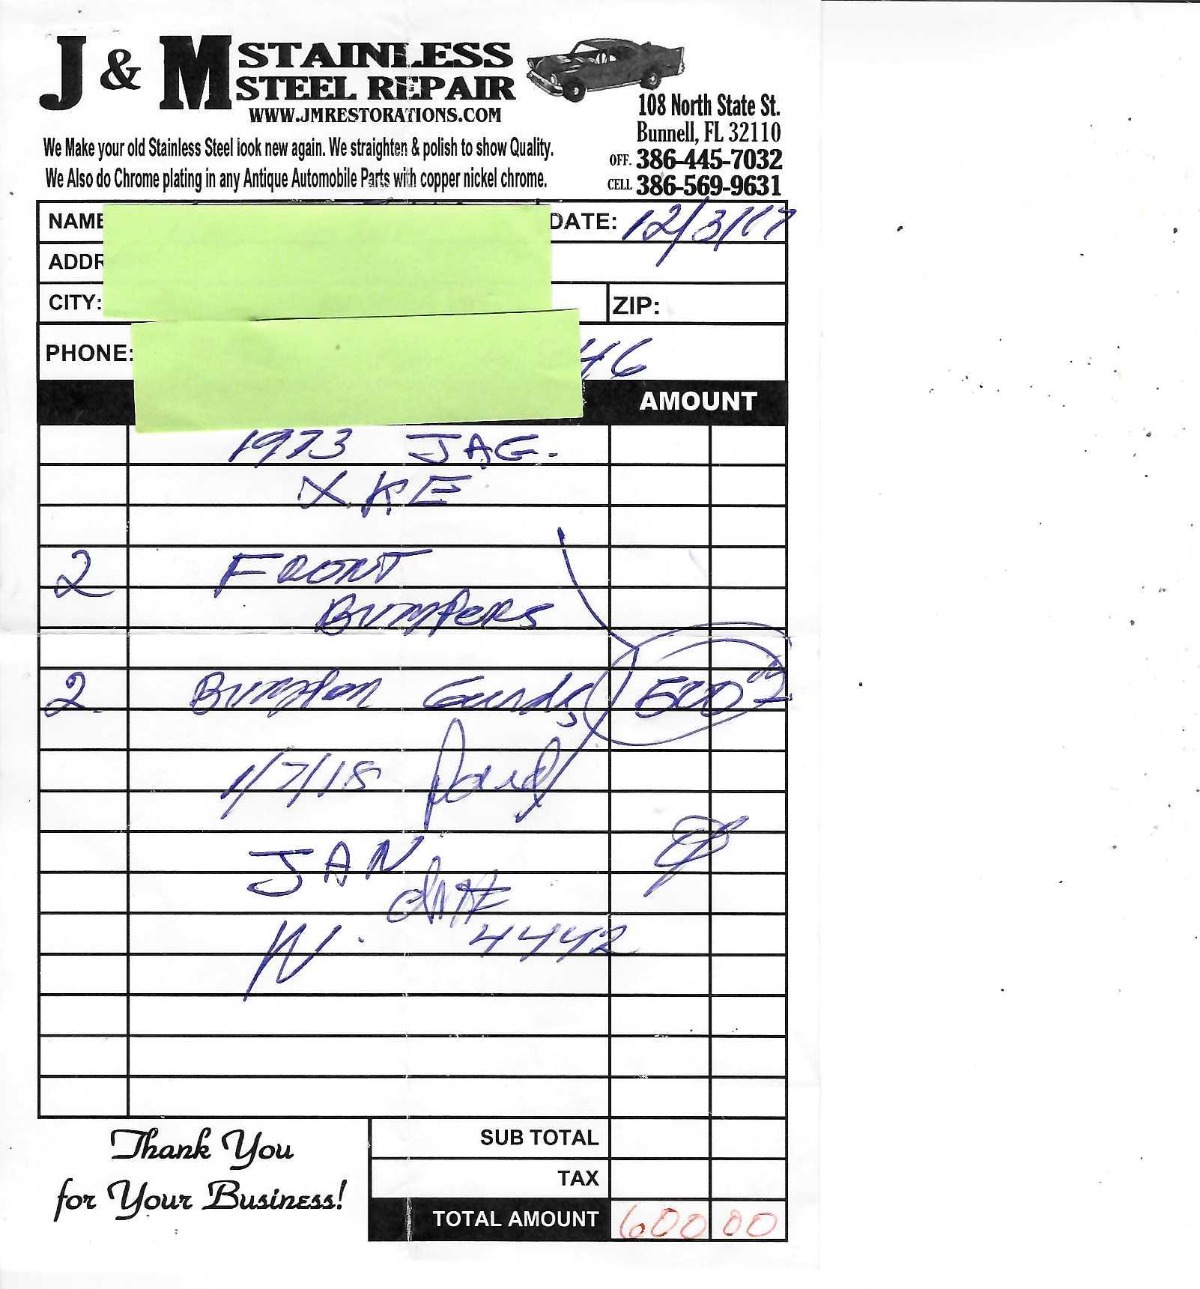 J & M STAINLESS
STEEL REPAIR
WWW.JMRESTORATIONS.COM
108 North State St.
Bunnell, FL 32110
OFF. 386-445-7032
CELL 386-569-9631
We Make your old Stainless Steel look new again. We straighten & polish to show Quality.
We Also do Chrome plating in any Antique Automobile Parts with copper nickel chrome.
NAME DATE: 12/3/17
ADDR
CITY: ZIP:
PHONE: 46
AMOUNT
1973 JAG.
XKE
2 FRONT
BUMPERS
2 Bumper Guards 500
1/7/18 Paid
JAN
4442
Thank You
for Your Business!
SUB TOTAL
TAX
TOTAL AMOUNT 600 00